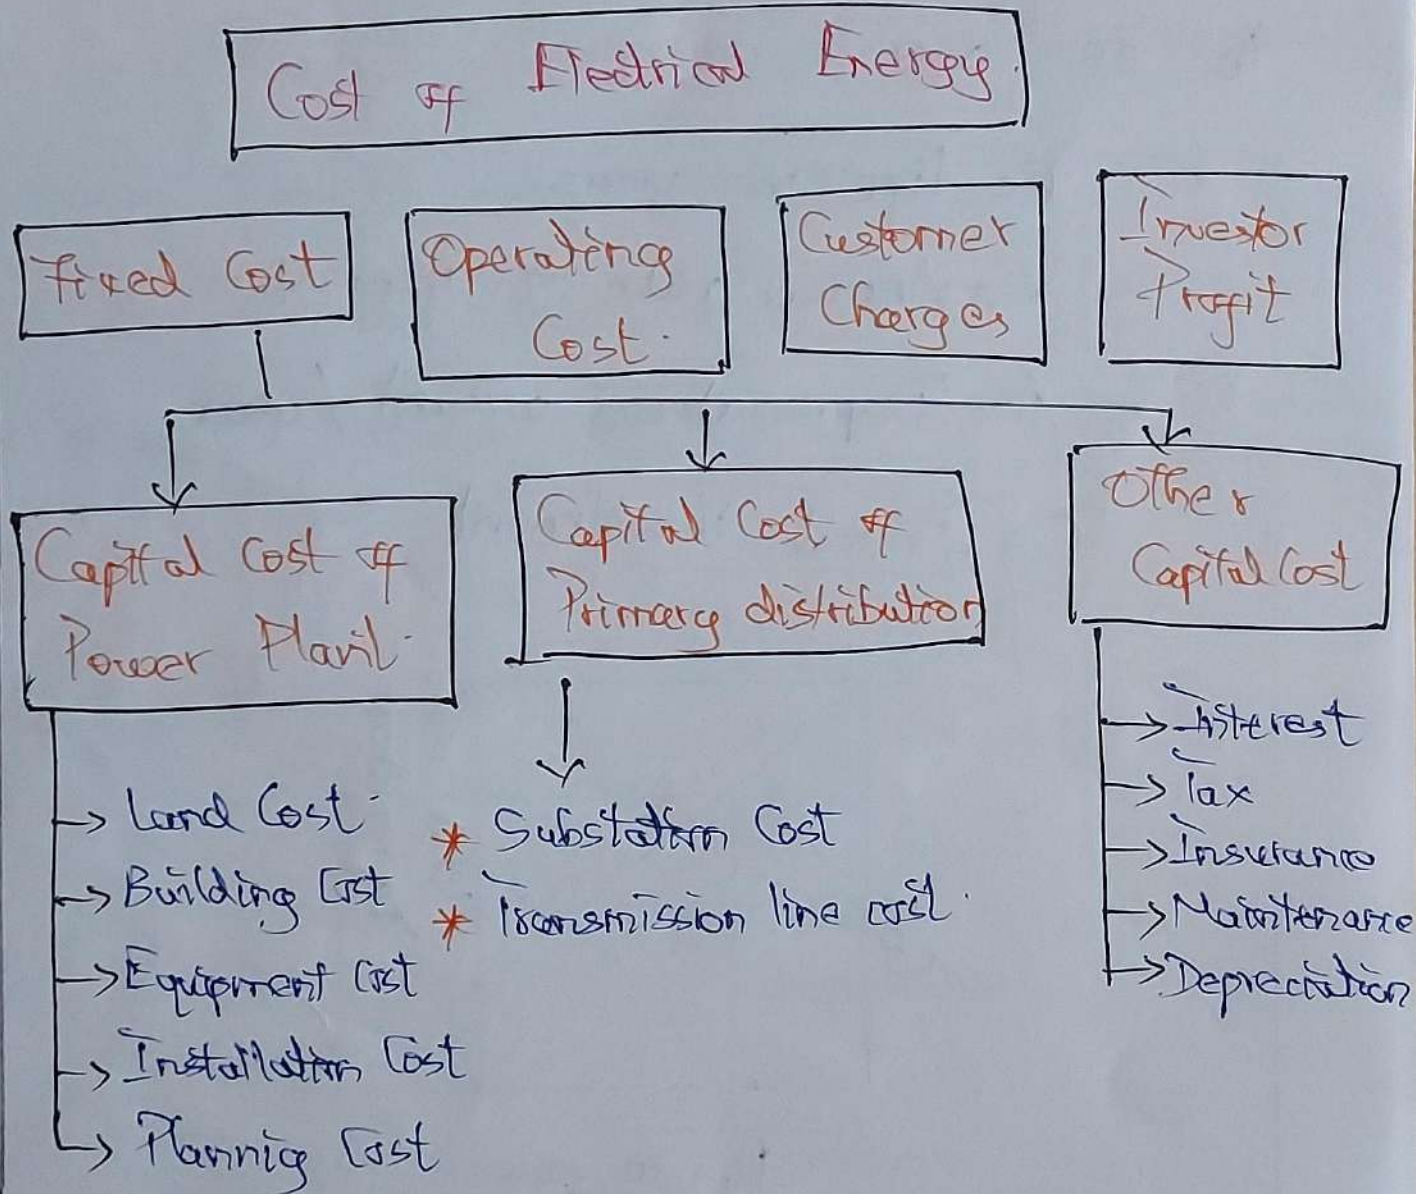 Cost of Electrical Energy.
Fixed Cost
Operating
Cost.
Customer
Charges
Investor
Profit
Capital Cost of
Power Plant.
Capital Cost of
Primary distribution
Other
Capital Cost
Land Cost.
Building Cost
Equipment Cost
Installation Cost
Plannig Cost
* Substation Cost
* Transmission line cost.
Interest
Tax
Insurance
Maintenance
Depreciation